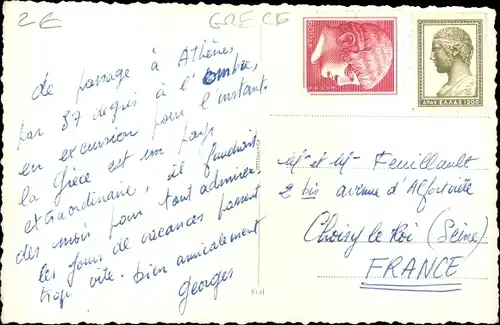 2€
GRECE
de passage à Athènes,
par 37 degrés à l'ombre,
en excursion pour l'instant.
la Grèce est un pays
extraordinaire, il faudrait
des mois pour tout admirer.
les jours de vacances passent
trop vite. bien amicalement
Georges
ΔΡΑΧ. ΕΛΛΑΣ 1300
Mr et Me Feuillault
2 bis avenue d'Alfortville
Choisy le Roi (Seine)
FRANCE